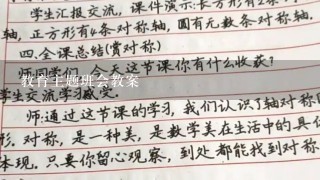 学生汇报交流，课件演示：长方形有2条
轴，正方形有4条对称轴，圆有无数条对称轴.
四.全课总结(赏对称)
今天这节课你有什么收获？
教育主题班会教案
学生交流学习
师：通过这节课的学习，我们认识了轴对称
形.对称，是一种美，是数学美在生活中的具
体现.只要你留心观察，到处都能找到对称